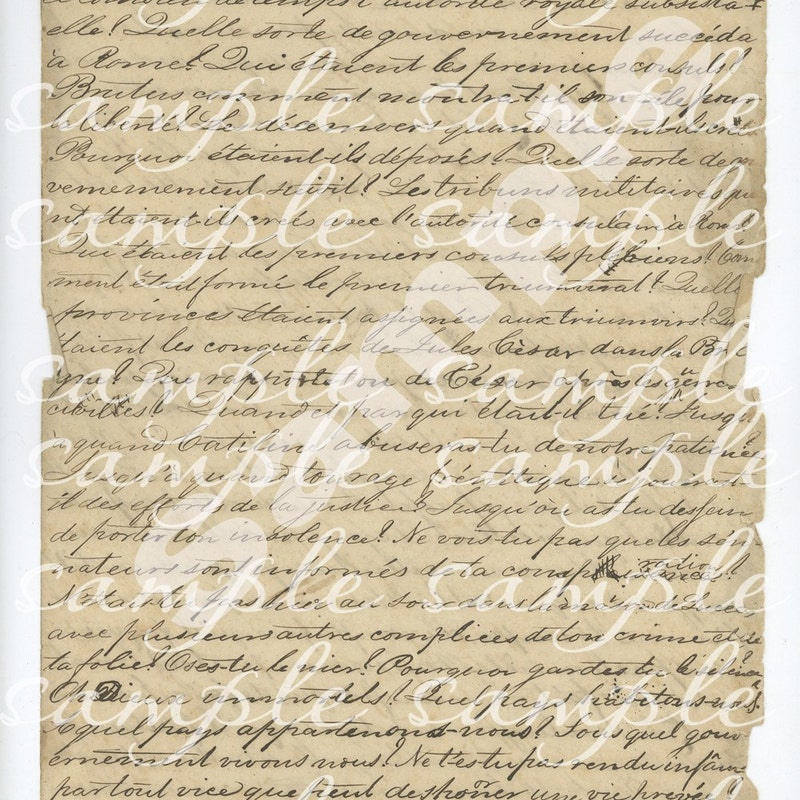 à combien de temps l'autorité royale subsista-t-
elle? Quelle sorte de gouvernement succéda
à Rome? Qui étaient les premiers consuls?
Brutus comment montra-t-il son zèle pour
la liberté? Les décemvers quand étaient-ils cré
Pourquoi étaient-ils déposés? Quelle sorte de
vernement suivit? Les tribuns militaires
étaient-ils creés avec l'autorité consulaire à Rome?
Qui étaient les premiers consuls plébiens? Com
ment était formé le premier triumvirat? Quelle
provinces étaient assignées aux triumvirs? Qu
étaient les conquêtes de Jules César dans la Br
gne? Que rapporte-t-on de César après les guerre
civilles? Quand et par qui était-il tué? Jusqu'
à quand Catilina abuseras-tu de notre patience?
Jusqu'à quand ton rage frénétique
il des efforts de la justice? Jusqu'où as tu dessein
de porter ton insolence? Ne vois-tu pas que les sén-
ateurs sont informés de ta conspiration?
N'étais-tu pas hier au soir dans la maison de
avec plusieurs autres complices de ton crime et de
ta folie? Oses-tu le nier? Pourquoi gardes tu le silence
O dieux immortels! Quel pays habitons-nous?
A quel pays appartenons-nous? Sous quel gou-
vernement vivons nous? Ne t'es tu pas rendu infâme
par tout vice que peut deshonorer une vie privée?